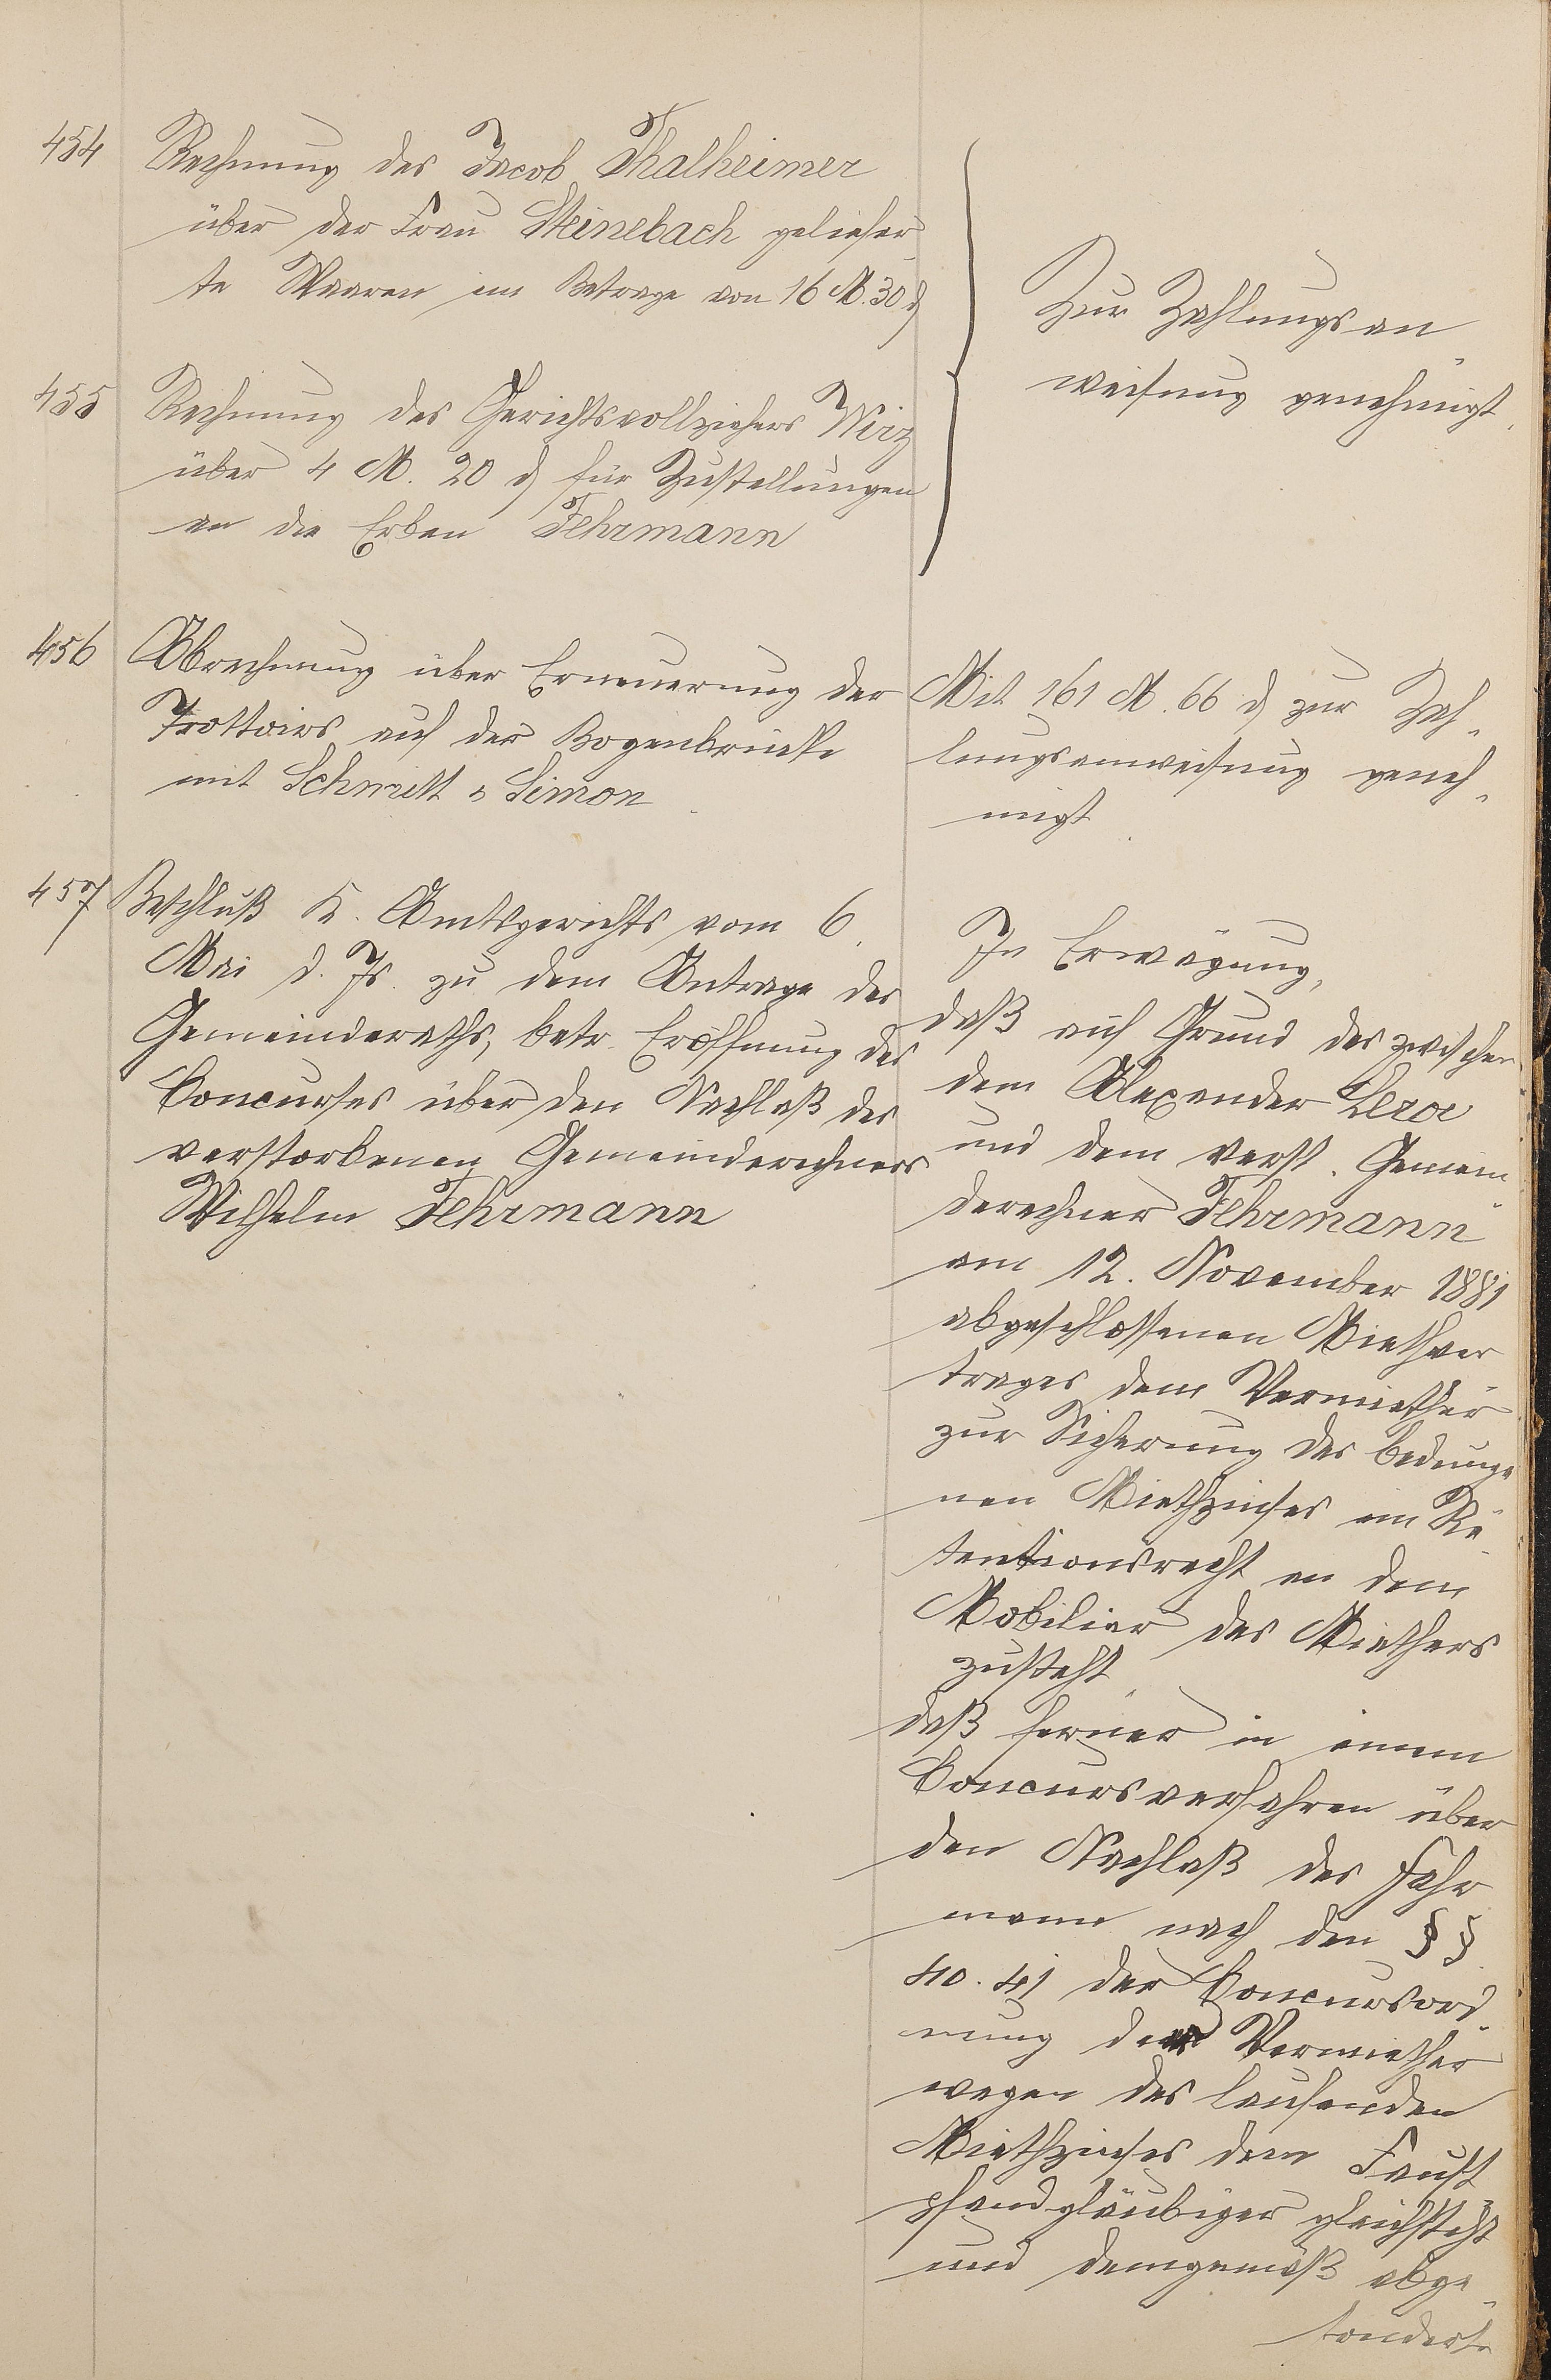 454
Rechnung des Jacob Thalheimer
über der Frau Steinebach geliefer
te Waaren im Betrage von 16 M. 30 ₰
455
Rechnung des Gerichtsvollziehers Wirz
über 4 M. 20 ₰ für Zustellungen
an die Erben Fehrmann
Zur Zahlungsan
weisung genehmigt.
456
Abrechnung über Erneuerung der
Trottoirs auf der Bogenbrücke
mit Schmitt & Simon
Mit 161 M. 66 ₰ zur Zah-
lungsanweisung geneh-
migt
457
Beschluß K. Amtsgerichts vom 6.
Mai d. Js. zu dem Antrage des
Gemeinderaths, betr. Eröffnung des
Concurses über den Nachlaß des
verstorbenen Gemeinderechners
Wilhelm Fehrmann
In Erwägung,
daß auf Grund des zwischen
dem Alexander
und dem verst. Gemein-
derechner Fehrmann
am 12. November 1881
abgeschlossenen Miethver-
trages dem Vermiether
zur Sicherung des bedunge
nen Miethzinses ein Re-
tentionsrecht an dem
Mobiliar des Miethers
zusteht
daß ferner in einem
Concursverfahren über
den Nachlaß des Fehr
mann nach den §§
40. 41 der Concursord-
nung der Vermiether
wegen des laufenden
Miethzinses dem Faust-
pfandgläubiger gleichsteht
und demgemäß abge-
sonderte